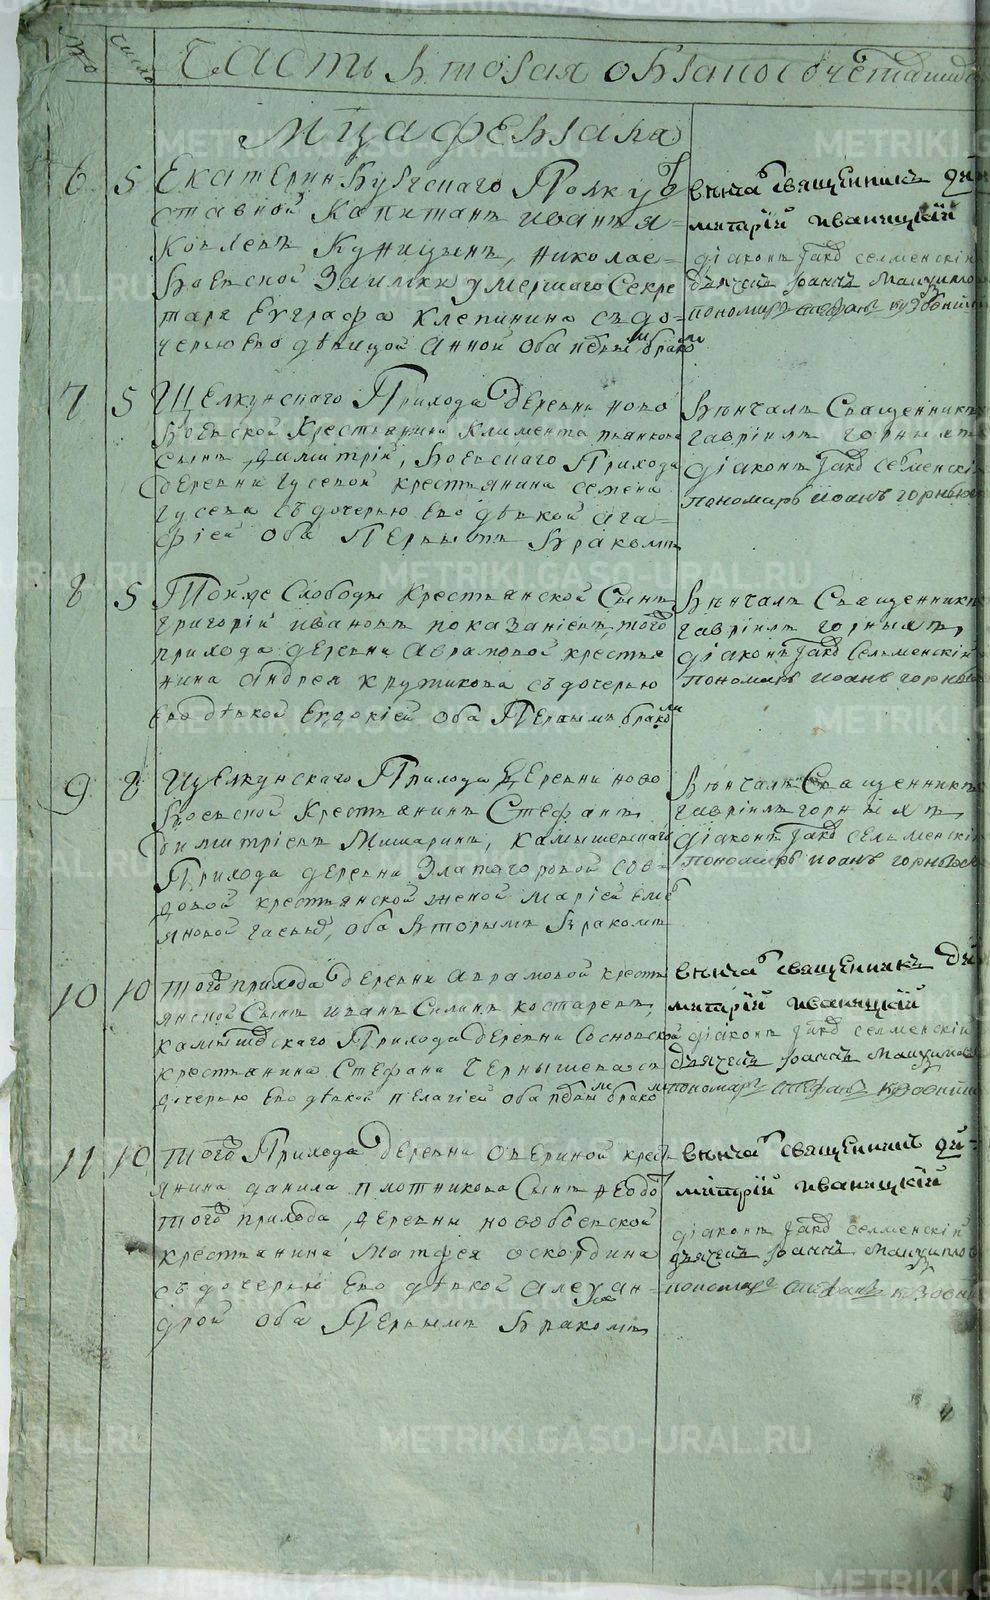 № число Часть вторая о бракосочетавши
Мца февраля
6 5 Екатеринбургскаго Полку От
ставной Капитанъ Иванъ Я=
ковлевъ Куницынъ, Николае=
воевской Заимки умершаго Секре
таря Евграфа Клепинина съ до=
черью его дѣвицой Анной оба первым браком
венча священникъ Ди
митрій Иваницкій
діаконъ Іаковъ Селменскій
дьячекъ
пономарь Стефанъ
7 5 Щелкунскаго Прихода деревни ново
боевской Крестьянина Климента пьянкова
Сынъ Димитрій, Боевскаго Прихода
деревни Гусевой крестьянина семена
Гусева съ дочерью его дѣвкой ага=
фіей оба Первымъ бракомъ
Вѣнчалъ Священникъ
гавріилъ горныхъ
діаконъ Іаковъ Селменскій
пономарь иоанъ горных
8 5 Тойже Слободы Крестьянской Сынъ
григорій ивановъ показаніевъ, того
прихода деревни Аврамовой кресть
янина Андрея крутикова съ дочерью
его дѣвкой Евдокіей оба Первымъ браком
Вѣнчалъ Священникъ
гавріилъ горныхъ,
діаконъ Іаковъ Селменскій
пономарь иоанъ горных
9 8 Щелкунскаго Прихода Деревни ново
боевской Крестьянинъ Стефанъ
димитріевъ Мишаринъ, камышевскаго
Прихода деревни Златогоровой со в
довой крестьянской женой Маріей Еме
ляновой оба вторымъ бракомъ
Вѣнчалъ Священникъ
гавріилъ горныхъ
діаконъ Іаковъ Селменскій
пономарь иоанъ горных
10 10 того прихода деревни аврамовой кресть
янской Сынъ иванъ Силинъ костаревъ,
камышевскаго Прихода деревни Сосновской
крестьянина Стефана Чернышева съ
дочерью его дѣвкой пелагіей оба первым браком
венча священникъ Ди
митрій Иваницкій
діаконъ Іаковъ Селменскій
дьячекъ
пономарь Стефанъ
11 10 того Прихода деревни Овериной крест
янина данила плотникова Сынъ Феодо
того прихода, деревни новобоевской
крестянина Матфея оскордина
съ дочерью его дѣвкой алексан=
дрой оба Первымъ бракомъ
венча священникъ Ди=
митрій Иваницкій
діаконъ Іаковъ Селменскій
дьячекъ
пономарь Стефанъ
METRIKI.GASO-URAL.RU